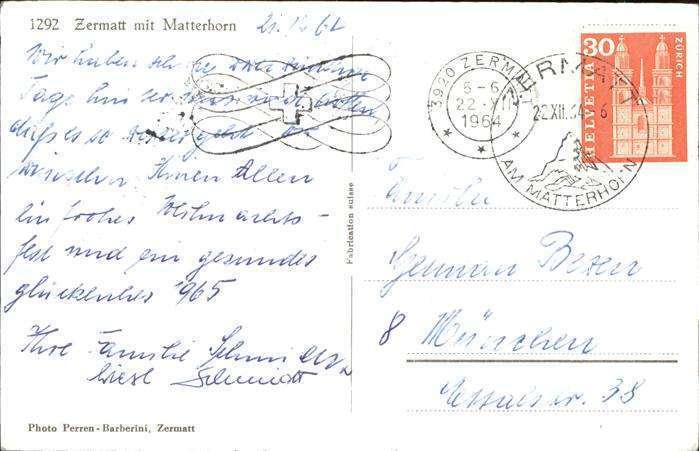 1292 Zermatt mit Matterhorn
21.12.64
Wir haben schon zwei schöne
Tage hinter uns und
daß es so weiter geht. Wir
wünschen Ihnen Allen
ein frohes Weihnachts-
fest und ein gesundes
glückliches 1965
Ihre Familie
Liesl Schmidt
Photo Perren-Barberini, Zermatt
Fabrication suisse
3920 ZERMATT
6-6
22.XII
1964
ZERMATT
22.XII.64-6
AM MATTERHORN
30
HELVETIA
ZÜRICH
Familie
German
8 München
38